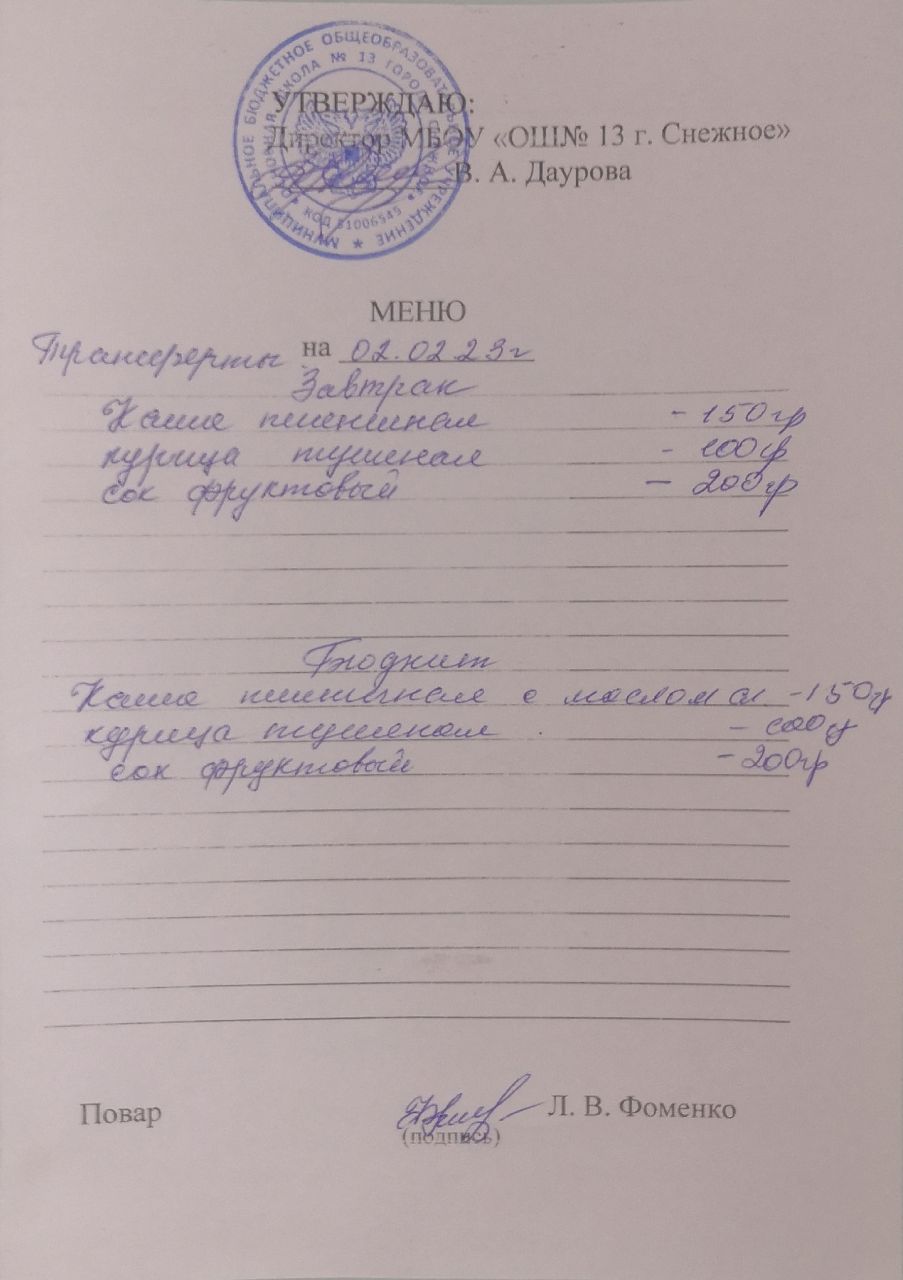 МУНИЦИПАЛЬНОЕ БЮДЖЕТНОЕ ОБЩЕОБРАЗОВАТЕЛЬНОЕ УЧРЕЖДЕНИЕ
ШКОЛА № 13 ГОРОДА
КОД 51006545
УТВЕРЖДАЮ:
Директор МБОУ «ОШ№ 13 г. Снежное»
В. А. Даурова
МЕНЮ
Трансферты на 02.02 23г
Завтрак
Каша пшеничная - 150гр
курица тушеная - 100гр
сок фруктовый — 200гр
Бюджет
Каша пшеничная с маслом сл - 150гр
курица тушеная - 100гр
сок фруктовый - 200гр
Повар Л. В. Фоменко
(подпись)